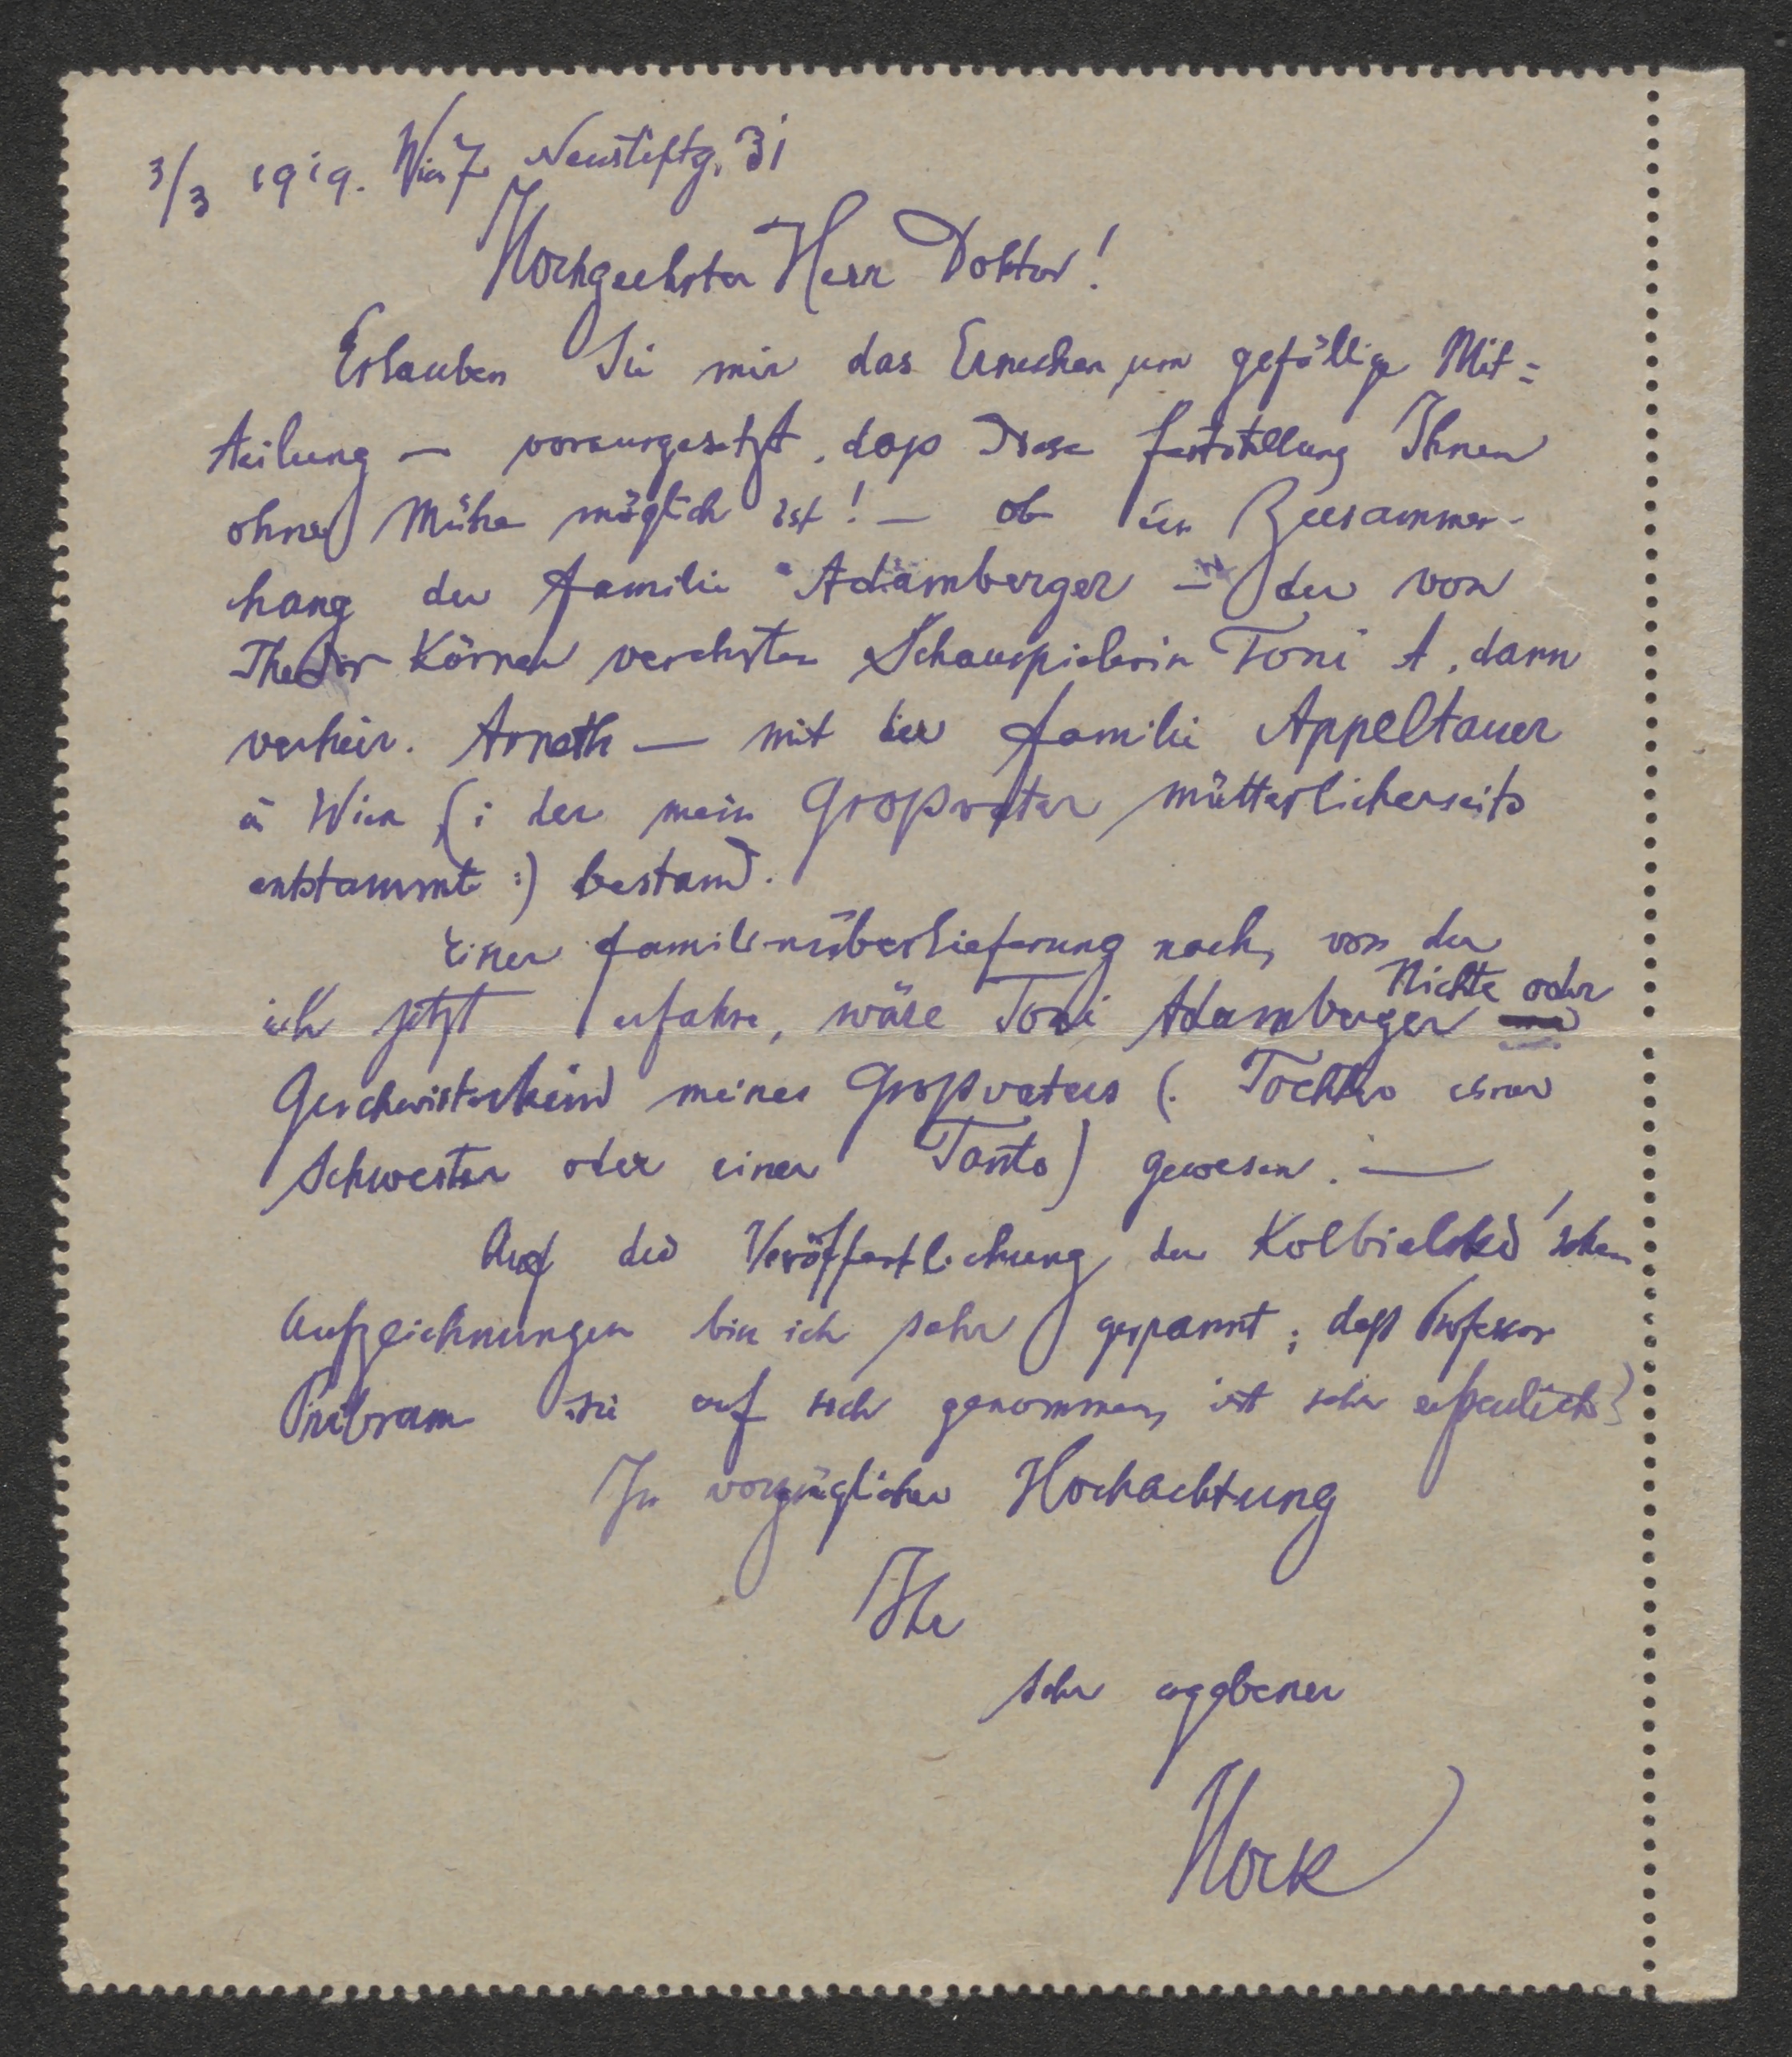 3/3 1919. Wien 7. Neustiftg. 31
Hochgeehrter Herr Doktor!
Erlauben Sie mir das Ersuchen um gefällige Mit=
teilung — vorausgesetzt, daß diese Feststellung Ihnen
ohne Mühe möglich ist! — ob ein Zusammen-
hang der Familie Adamberger — der von
Theodor Körner verehrten Schauspielerin Toni A, dann
verheir. Arneth — mit der Familie Appeltauer
in Wien (: der mein Großvater mütterlicherseits
entstammte :) bestand.
Einer Familienüberlieferung nach, von der
ich jetzt erfahre, wäre Toni Adamberger Nichte oder
Geschwisterkind meines Großvaters (. Tochter einer
Schwester oder einer Tante) gewesen. —
Auf die Veröffentlichung der Kolbielski'schen
Aufzeichnungen bin ich sehr gespannt; daß Professor
Pribram sie auf sich genommen, ist sehr erfreulich
In vorzüglicher Hochachtung
Ihr
sehr ergebener
Hock